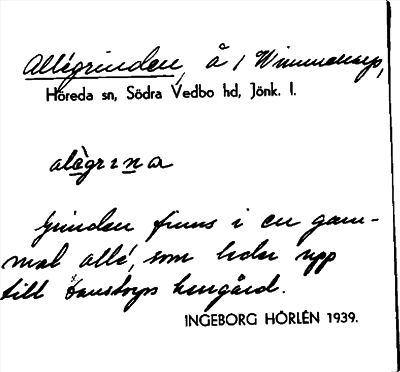 Allégrinden, å / Wimmelskarp,
Höreda sn, Södra Vedbo hd, Jönk. l.
alègrına
Grinden finns i en gam-
mal allé, som leder upp
till herrgård.
INGEBORG HÖRLÉN 1939.